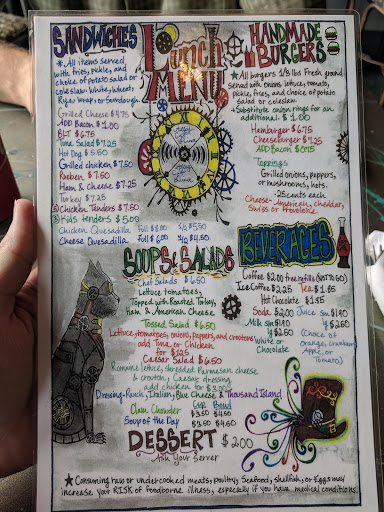 SANDWICHES
* All items served
with fries, pickle, and
choice of potato salad or
coleslaw. White, wheat,
Rye, wrap or Sourdough.
Grilled Cheese $4.75
ADD Bacon $1.00
BLT $6.75
Tuna Salad $7.25
Hot Dog $5.50
Grilled chicken $7.50
Rueben $7.50
Ham & Cheese $7.25
Turkey $7.25
Chicken Tenders $7.50
Kids tenders $5.00
Chicken Quesadilla Full $8.00 1/2 $5.50
Cheese Quesadilla Full $6.00 1/2 $4.50
Lunch
MENU
HANDMADE
BURGERS
* All burgers 1/3 lbs Fresh ground
served with onions, lettuce, tomato,
pickle, fries, and choice of potato
salad or coleslaw.
* Substitute onion rings for an
additional $1.00
Hamburger $6.75
Cheeseburger $7.25
ADD Bacon $0.75
Toppings
Grilled onions, peppers,
or mushrooms, hots.
25 cents each.
Cheese-American, cheddar,
Swiss or Provolone.
SOUPS & SALADS
Chef Salads $6.50
Lettuce tomatoes,
Topped with Roasted Turkey,
Ham & American Cheese
Tossed Salad $6.50
Lettuce, tomatoes, onions, peppers, and croutons
add Tuna or Chicken
for $1.25
Caesar Salad $6.50
Romaine lettuce, shredded Parmesan cheese
& crouton, Caesar dressing
add chicken for $3.00
Dressing-Ranch, Italian, Blue Cheese & Thousand Island
Cup Bowl
Clam Chowder $3.50 $4.50
Soup of the Day $3.50 $4.50
DESSERT $2.00
Ask Your Server
BEVERAGES
Coffee $2.00 free refills (NOT TO GO)
Ice Coffee $2.25 Tea $1.85
Hot Chocolate $1.85
Soda $2.00 Juice Sm $1.90
Milk sm $1.90 lg $2.50
lg $2.50 (Choice of
White or Orange, cranberry,
Chocolate Apple, or
Tomato)
* Consuming raw or undercooked meats, poultry, Seafood, shellfish, or Eggs may
increase your RISK of foodborne illness, especially if you have medical conditions.